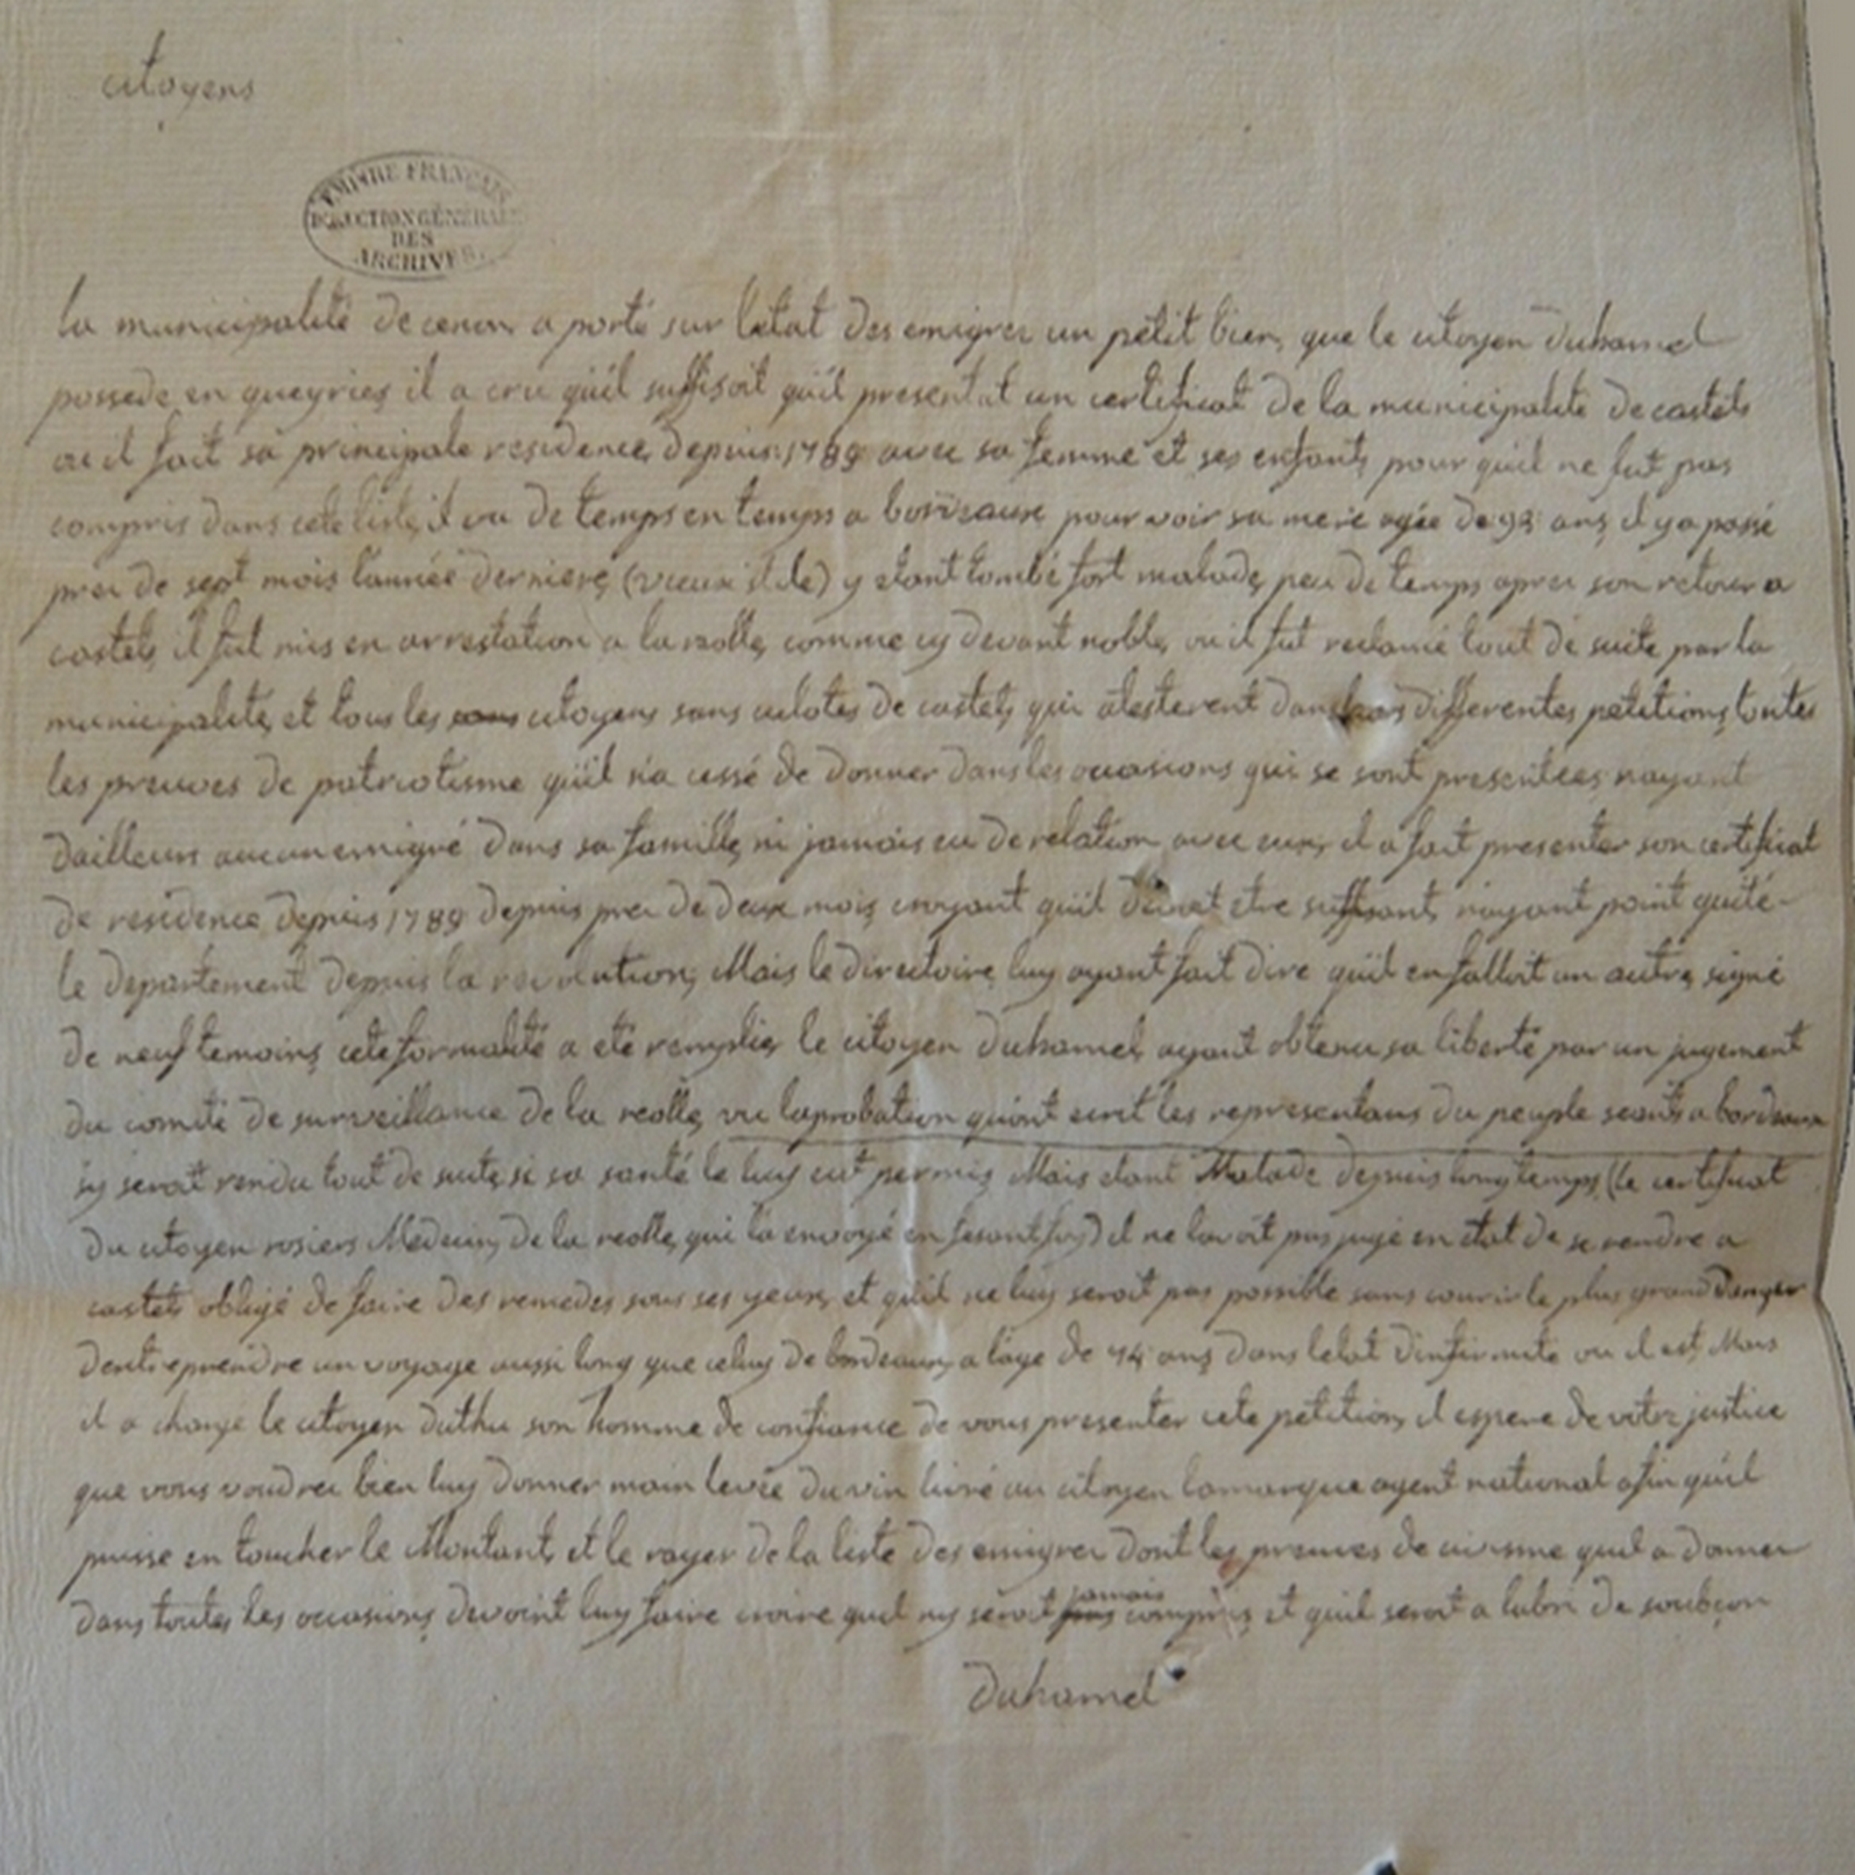 citoyens
EMPIRE FRANÇAIS
DIRECTION GÉNÉRALE
DES
ARCHIVES
la municipalité de cenon a porté sur letat des emigrez un petit bien, que le citoyen duhamel
possede en queyries il a cru qu'il suffisoit qu'il presentat un certificat de la municipalite de castets
ou il fait sa principale residence, depuis 1789 avec sa femme et ses enfants, pour qu'il ne fut pas
compris dans cete liste, il va de temps en temps a bordeaux pour voir sa mere agée de 92 ans, il y a passé
prez de sept mois l'année derniere, (vieux stile) y etant tombé fort malade, peu de temps aprez son retour a
castets, il fut mis en arrestation a la reolle, comme cy devant noble, ou il fut reclamé tout de suite par la
municipalite, et tous les citoyens sans culotes de castets, qui atesterent dans leurs differentes petitions, toutes
les preuves de patriotisme qu'il n'a cessé de donner dans les occasions qui se sont presentées nayant
dailleurs aucun emigré dans sa famille, ni jamais eu de relation avec eux, il a fait presenter son certificat
de residence depuis 1789 depuis prez de deux mois, croyant qu'il devoit etre suffisant, nayant point quité
le departement depuis la revolution, Mais le directoire luy ayant fait dire qu'il en falloit un autre, signé
de neuf temoins, cete formalité a eté remplie, le citoyen duhamel, ayant obtenu sa liberté par un jugement
du comité de surveillance de la reolle, vu laprobation qu'ont ecrit les representans du peuple seants a bordeaux
sy seroit rendu tout de suite, si sa santé le luy eut permis, Mais etant Malade depuis longtemps, (le certificat
du citoyen rosiers Medecin, de la reolle, qui la envoyé en fesant foy) il ne lavoit pas jugé en etat de se rendre a
castets obligé de faire des remedes sous ses yeux, et qu'il ne luy seroit pas possible sans courir le plus grand danger
dentreprendre un voyage aussi long que celuy de bordeaux, a lage de 74 ans, dans letat dinfirmité ou il est, Mais
il a chargé le citoyen duthu son homme de confiance de vous presenter cete petition, il espere de votre justice
que vous voudrez bien luy donner main levée du vin livré au citoyen lamarque agent national afin qu'il
puisse en toucher le Montant, et le rayer de la liste des emigrez dont les preuves de civisme quil a donner
dans toutes les occasions, devoint luy faire croire quil ny seroit pas jamais compris, et quil seroit a labri de soubçon
Duhamel